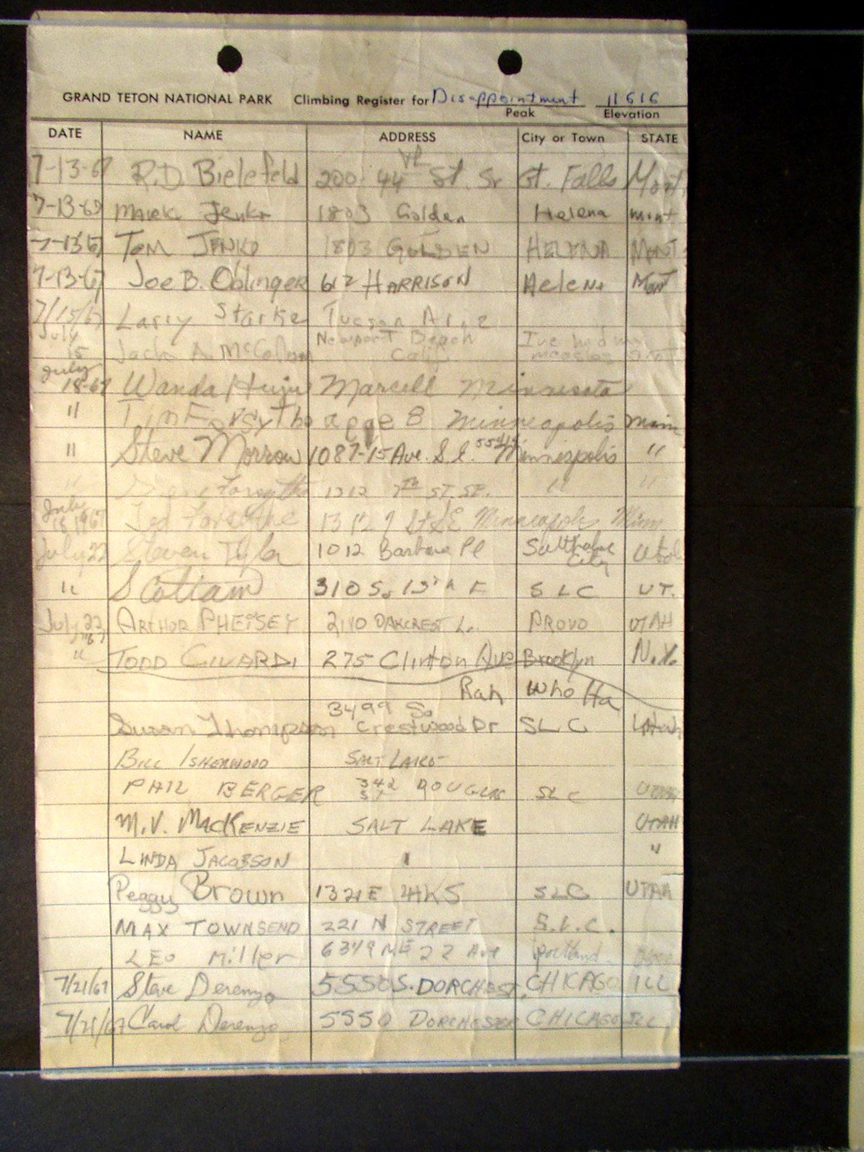 GRAND TETON NATIONAL PARK Climbing Register for Disappointment 11616
Peak Elevation
DATE NAME ADDRESS City or Town STATE
7-13-67 R.D Bielefeld 200-44 St. Gt. Falls Mont
7-13-67 1803 Golden Helena mont
7-13-67 Tom JENKO 1803 GOLDEN HELENA MONT
7-13-67 Joe B. Oblinger 612 HARRISON Helena Mont
7/15/67 Larry Starke Tucson Ariz
July 15 Jack A. Newport Beach Calif I've had my
July 18-67 Wanda Marcell Minnesota
" Tim Forsythe age 8 Minneapolis Minn
" Steve Morrow 1087-15 Ave. S.E. 55414 Minneapolis "
" Forsythe 1312 7th ST. SE. " "
July 18 1967 Ted Forsythe 1312 7 St SE Minneapolis Minn
July 22 Steven Tyler 1012 Barbara Pl Salt Lake City Utah
" 310 S. 13th E SLC UT.
July 22 1967 ARTHUR PHEYSEY 2110 OAKCREST L. PROVO UTAH
" TODD CIVARDI 275 Clinton Ave Brooklyn N.Y.
Rah Who Ha
Susan Thompson 3499 So Crestwood Dr SLC Utah
BILL ISHERWOOD SALT LAKE
PHIL BERGER 342 DOUGLAS SLC UTAH
M.V. MACKENZIE SALT LAKE UTAH
LINDA JACOBSON "
Peggy Brown 1321 E SLC UTAH
MAX TOWNSEND 221 N STREET S.L.C.
LEO Miller 6349 NE 22 Ave Portland
7/21/67 Steve Derenzo 5550 S. DORCHEST. CHICAGO ILL
7/21/67 Carol Derenzo 5550 DORCHESTER CHICAGO ILL.